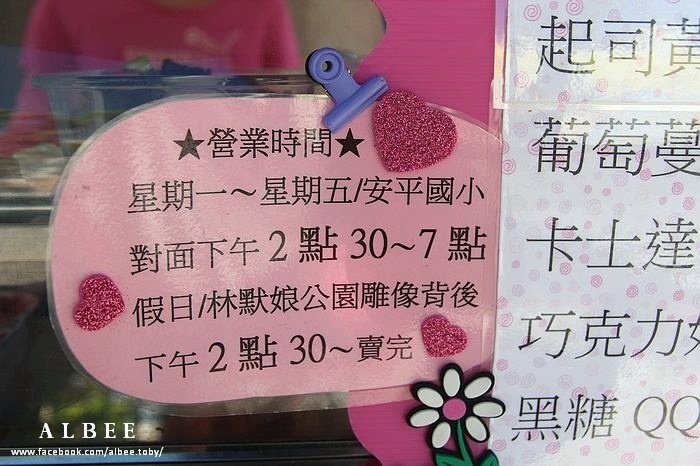 ★營業時間★
星期一～星期五/安平國小
對面下午 2 點 30~7 點
假日/林默娘公園雕像背後
下午 2 點 30~賣完
起司黃
葡萄蔓
卡士達
巧克力
黑糖 QQ
ALBEE
www.facebook.com/albee.toby/